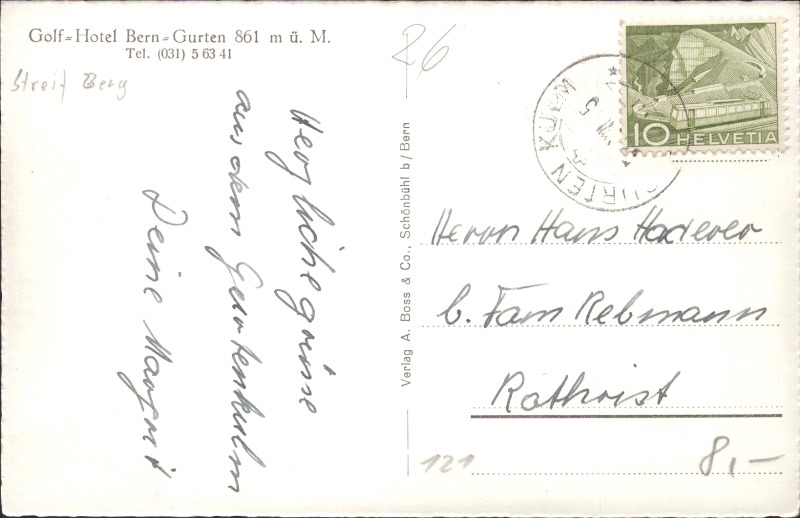 Golf-Hotel Bern-Gurten 861 m ü. M.
Tel. (031) 5 63 41
Streif Berg
Herzliche grüsse
aus dem Gurtenkulm
Deine Margrit
Verlag A. Boss & Co., Schönbühl b/Bern
26
GURTEN KULM
10 HELVETIA
Herrn Hans
b. Fam Rebmann
Rothrist
121
8,-